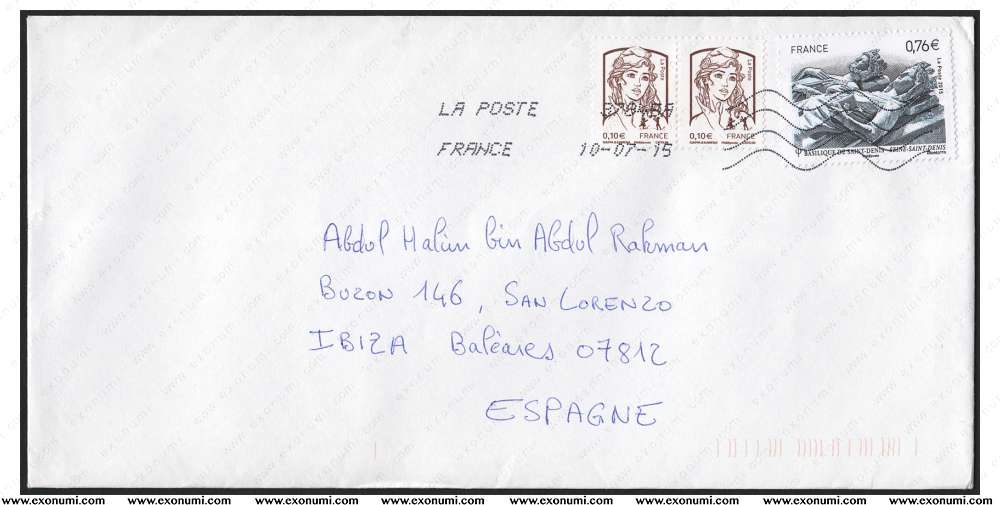 FRANCE 0,76€
La Poste 2015
La Poste
0,10€ FRANCE
La Poste
0,10€ FRANCE
BASILIQUE DE SAINT-DENIS - SEINE-SAINT-DENIS
LA POSTE
FRANCE 10-07-15
Abdol Halim bin Abdol Rahman
BUZON 146, SAN LORENZO
IBIZA Baléares 07812
ESPAGNE
www.exonumi.com www.exonumi.com www.exonumi.com www.exonumi.com www.exonumi.com www.exonumi.com www.exonumi.com www.exonumi.com